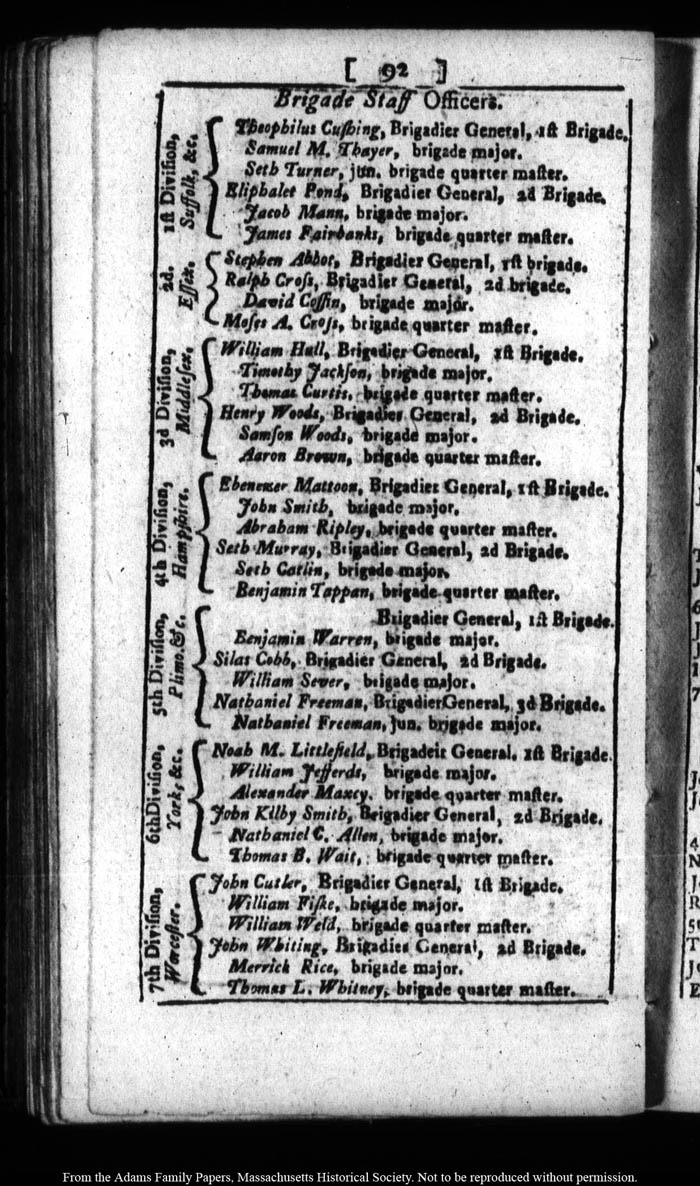 [ 92 ]
Brigade Staff Officers.
1ſt Diviſion,
Suffolk, &c.
Theophilus Cuſhing, Brigadier General, 1ſt Brigade.
Samuel M. Thayer, brigade major.
Seth Turner, jun. brigade quarter maſter.
Eliphalet Pond, Brigadier General, 2d Brigade.
Jacob Mann, brigade major.
James Fairbanks, brigade quarter maſter.
2d.
Eſſex.
Stephen Abbot, Brigadier General, 1ſt brigade.
Ralph Croſs, Brigadier General, 2d brigade.
David Coffin, brigade major.
Moſes A. Croſs, brigade quarter maſter.
3d Diviſion,
Middleſex.
William Hull, Brigadier General, 1ſt Brigade.
Timothy Jackſon, brigade major.
Thomas Curtis, brigade quarter maſter.
Henry Woods, Brigadier General, 2d Brigade.
Samſon Woods, brigade major.
Aaron Brown, brigade quarter maſter.
4th Diviſion,
Hampſhire.
Ebenezer Mattoon, Brigadier General, 1ſt Brigade.
John Smith, brigade major.
Abraham Ripley, brigade quarter maſter.
Seth Murray, Brigadier General, 2d Brigade.
Seth Catlin, brigade major.
Benjamin Tappan, brigade quarter maſter.
5th Diviſion,
Plimo. &c.
Brigadier General, 1ſt Brigade.
Benjamin Warren, brigade major.
Silas Cobb, Brigadier General, 2d Brigade.
William Sever, brigade major.
Nathaniel Freeman, BrigadierGeneral, 3d Brigade.
Nathaniel Freeman, jun. brigade major.
6thDiviſion,
York, &c.
Noah M. Littlefield, Brigadeir General. 1ſt Brigade.
William Jefferds, brigade major.
Alexander Maxcy. brigade quarter maſter.
John Kilby Smith, Brigadier General, 2d Brigade.
Nathaniel C. Allen, brigade major.
Thomas B. Wait, brigade quarter maſter.
7th Diviſion,
Worceſter.
John Cutler, Brigadier General, 1ſt Brigade.
William Fiſke, brigade major.
William Weld, brigade quarter maſter.
John Whiting, Brigadier General, 2d Brigade.
Merrick Rice, brigade major.
Thomas L. Whitney, brigade quarter maſter.
From the Adams Family Papers, Massachusetts Historical Society. Not to be reproduced without permission.